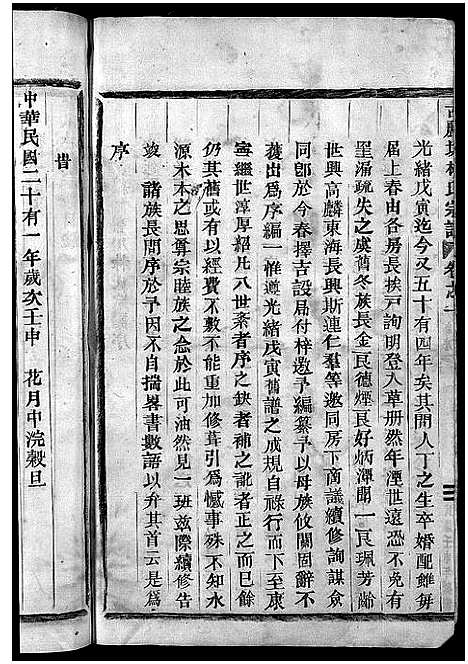 光緒戊寅迄今又五十有四年矣其間人丁之生卒婚配雖每
屆上春由各房長挨戶詢明登入草册然年湮世遠恐不免有
罣漏疏失之虞舊冬族長金良德煙良好炳潭聞一良珮芳齡
世興高麟東海長興斯蓮仁羣等邀同房下商議續修詢謀僉
同卽於今春擇吉設局付梓邀予編纂予以母族攸關固辭不
獲出爲序編一惟遵光緒戊寅舊譜之成規自祿行而下至康
寧繼世淳厚紹凡八世紊者序之鈌者補之訛者正之而已餘
仍其舊或有以經費不敷不能加修葺引爲憾事殊不知水
源木本之思尊宗睦族之念於此可油然見一班兹際續修告
竣諸族長問序於予因不自揣畧書數語以弁其首云是爲
序
旹
中華民國二十有一年歲次壬申 花月中浣穀旦
氏宗譜 卷之一